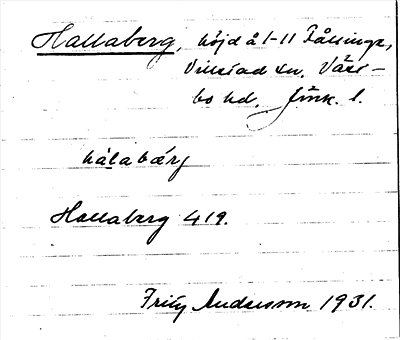 Hallaberg, höjd å 1-11 Fållinge,
Villstad sn. Väst-
bo hd. Jönk. l.
hálabǽrj
Hallaberg 419.
Fritz Andersson 1931.